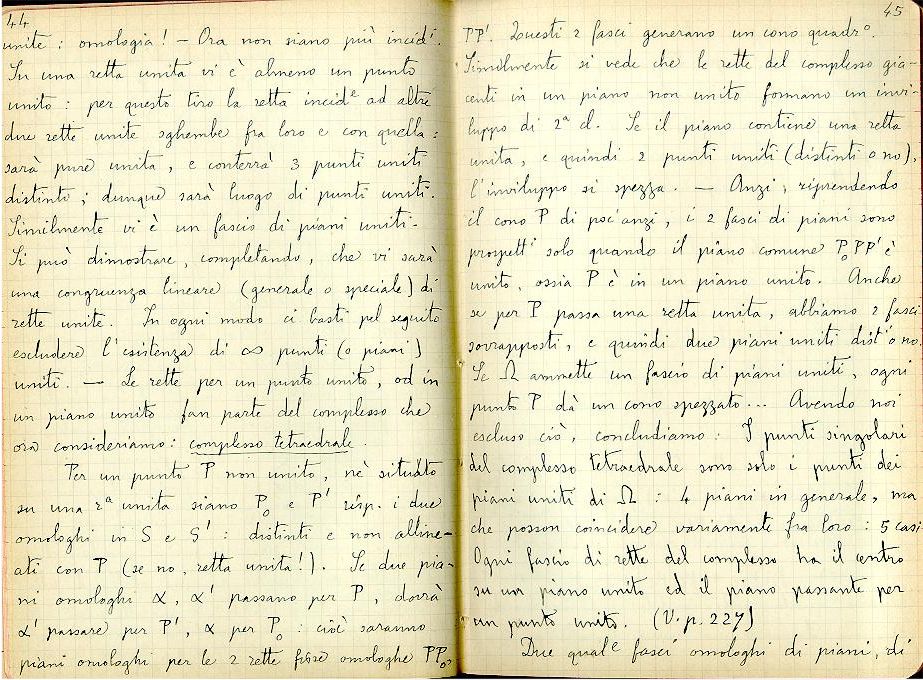 44
unite: omologia! — Ora non siano più incid.ⁱ
Su una retta unita vi è almeno un punto
unito: per questo tiro la retta incid.ᵉ ad altre
due rette unite sghembe fra loro e con quella:
sarà pure unita, e conterrà 3 punti uniti
distinti; dunque sarà luogo di punti uniti.
Similmente vi è un fascio di piani uniti.
Si può dimostrare, completando, che vi sarà
una congruenza lineare (generale o speciale) di
rette unite. In ogni modo ci basti pel seguito
escludere l'esistenza di ∞ punti (o piani)
uniti. — Le rette per un punto unito, od in
un piano unito fan parte del complesso che
ora consideriamo: complesso tetraedrale.
Per un punto P non unito, nè situato
su una rᵃ unita siano P₀ e P' risp. i due
omologhi in S e S': distinti e non alline-
ati con P (se no, retta unita!). Se due pia-
ni omologhi α, α' passano per P, dovrà
α' passare per P', α per P₀: cioè saranno
piani omologhi per le 2 rette fisse omologhe PP₀,
45
PP'. Questi 2 fasci generano un cono quadr.ᵒ
Similmente si vede che le rette del complesso gia-
centi in un piano non unito formano un invi-
luppo di 2ᵃ cl. Se il piano contiene una retta
unita, e quindi 2 punti uniti (distinti o no),
l'inviluppo si spezza. — Anzi, riprendendo
il cono P di poc'anzi, i 2 fasci di piani sono
prospett.ⁱ solo quando il piano comune P₀PP' è
unito, ossia P è in un piano unito. Anche
se per P passa una retta unita, abbiamo 2 fasci
sovrapposti, e quindi due piani uniti dist.ⁱ o no.
Se Ω ammette un fascio di piani uniti, ogni
punto P dà un cono spezzato... Avendo noi
escluso ciò, concludiamo: I punti singolari
del complesso tetraedrale sono solo i punti dei
piani uniti di Ω: 4 piani in generale, ma
che posson coincidere variamente fra loro: 5 casi.
Ogni fascio di rette del complesso ha il centro
su un piano unito ed il piano passante per
un punto unito. (V. p. 227)
Due qual.ᵉ fasci omologhi di piani, di